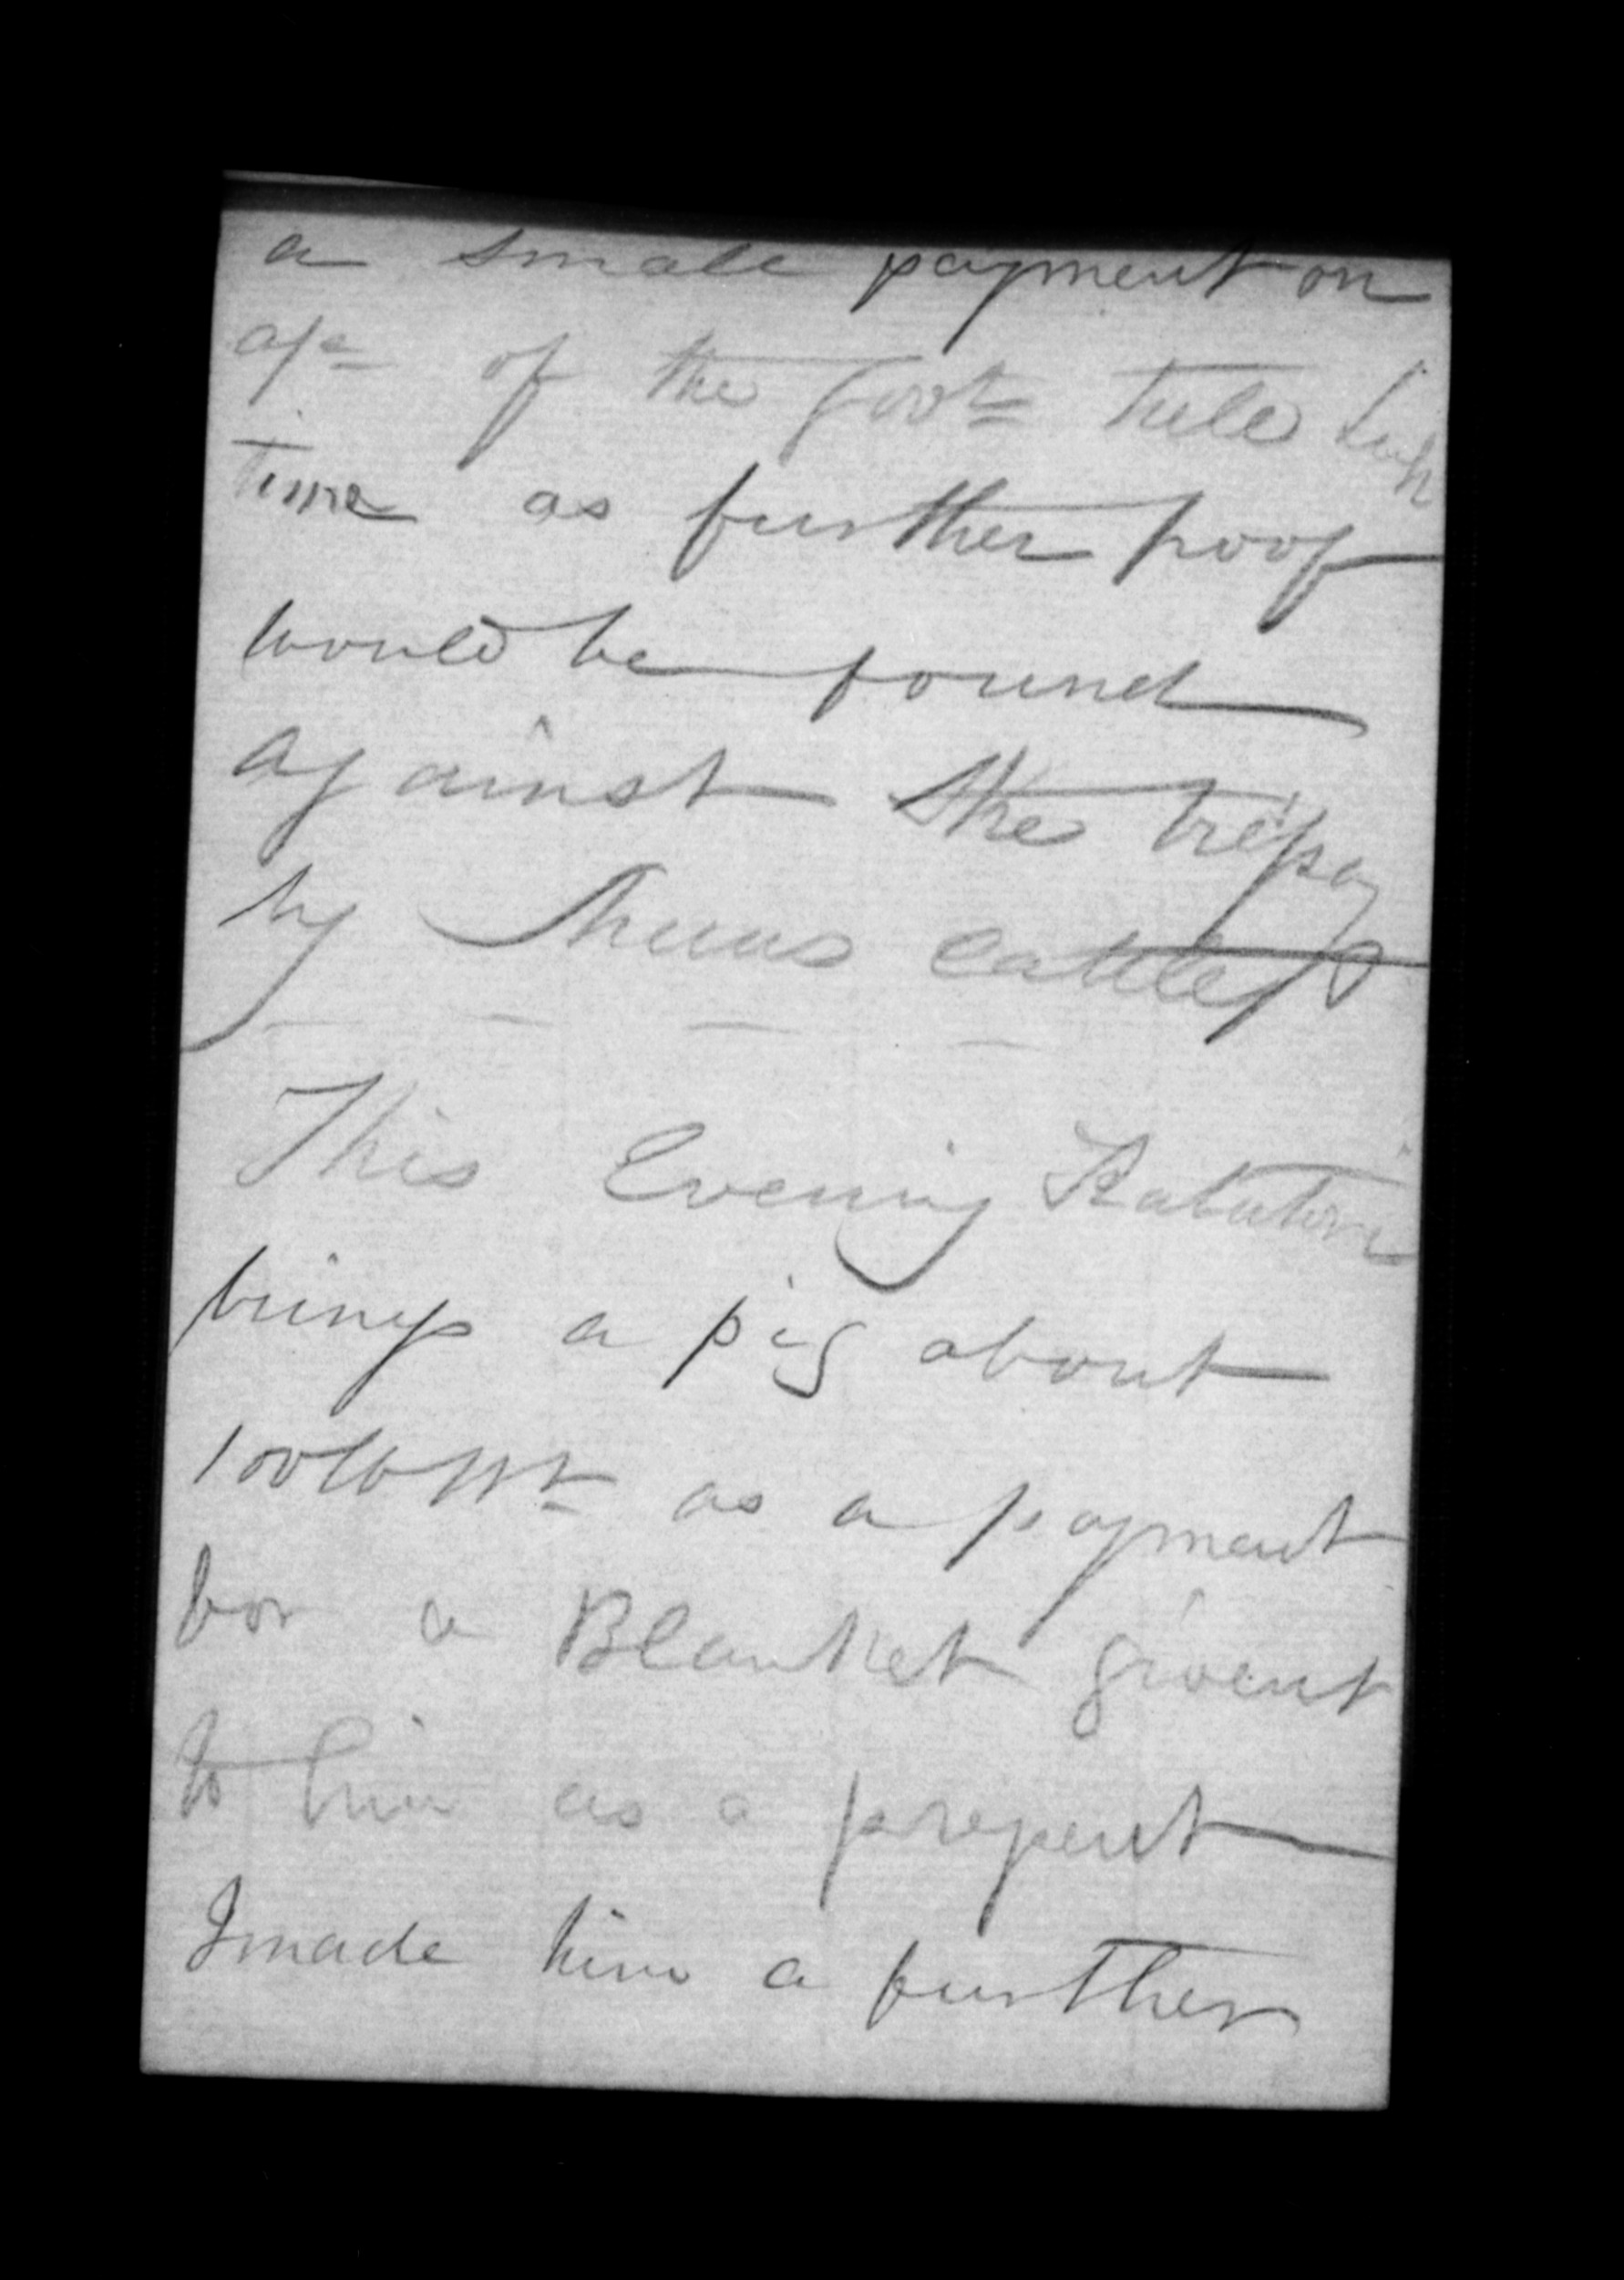 a small payment on
a/c of the Govt till such
time as further proof
would be found
against the trespass
by cattle
This Evening
brings a pig about
100 lb Wt as a payment
for a Blanket givent
to him as a present
I made him a further